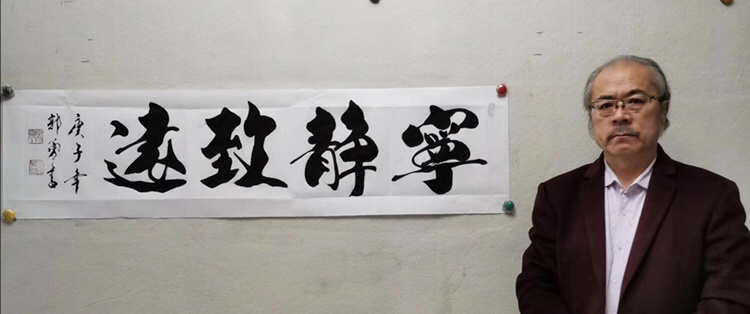 寧静致遠
庚子年
郭書